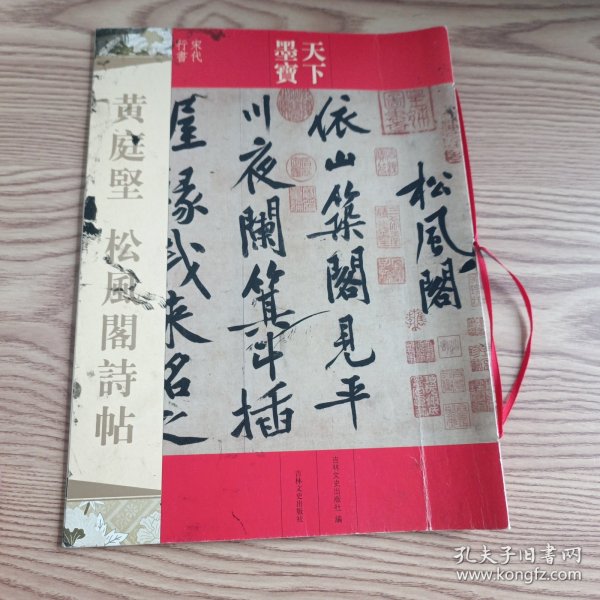 宋代
行書
天下
墨寶
黄庭堅 松風閣詩帖
松風閣
依山築閣見平
川夜闌箕斗插
屋椽我來名之
吉林文史出版社 編
吉林文史出版社
孔夫子旧书网
www.kongfz.com